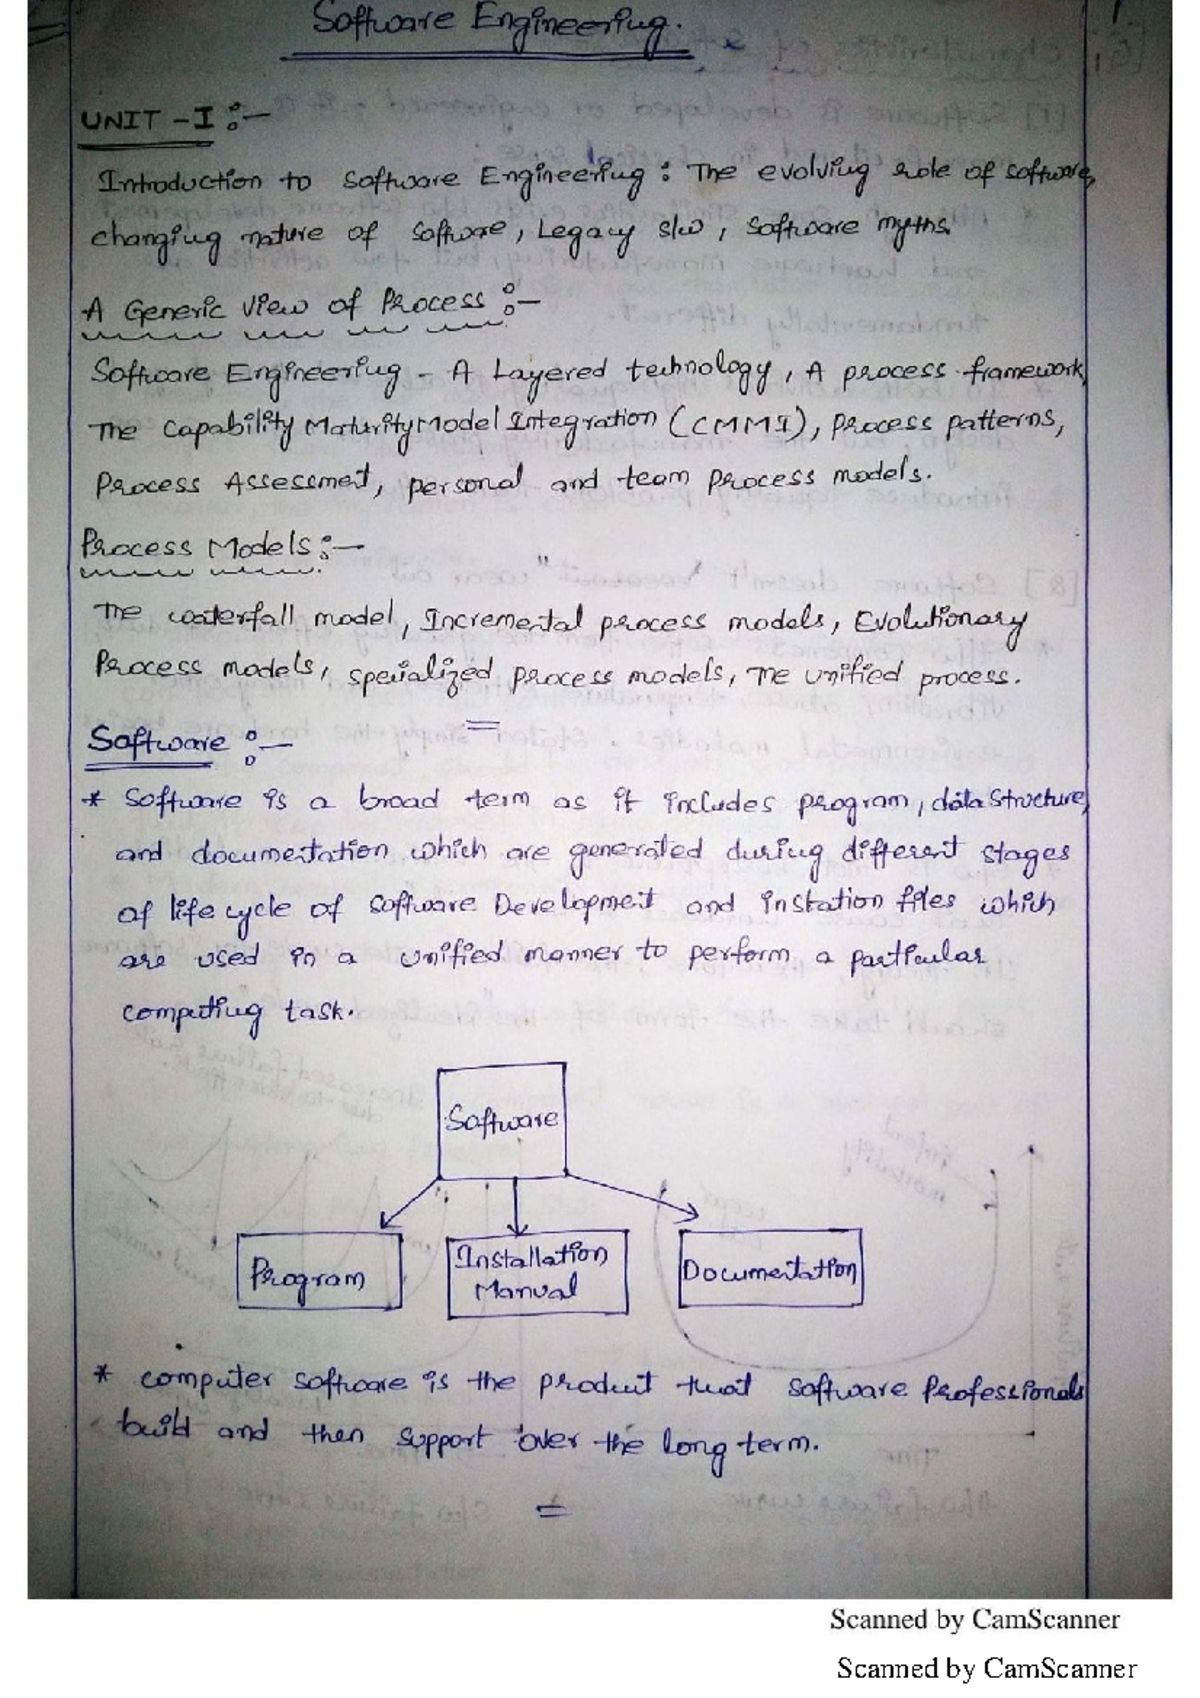 Software Engineering.
1.
UNIT - I :-
Introduction to Software Engineering : The evolving role of software,
changing nature of software, Legacy s/w, software myths.
A Generic view of Process :-
Software Engineering - A Layered technology, A process framework,
The Capability Maturity Model Integration (CMMI), process patterns,
Process Assessment, personal and team process models.
Process Models :-
The waterfall model, Incremental process models, Evolutionary
Process models, specialized process models, The unified process.
Software :-
* Software is a broad term as it includes program, data structure,
and documentation which are generated during different stages
of life cycle of software Development and instation files which
are used in a unified manner to perform a particular
computing task.
Software
Program
Installation
Manual
Documentation
* computer software is the product that software Professionals
build and then support over the long term.
Scanned by CamScanner
Scanned by CamScanner